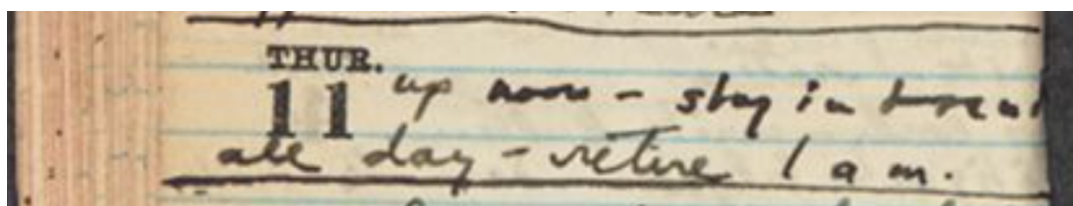 THUR.
11 up noon - stay in
all day - retire 1 am.